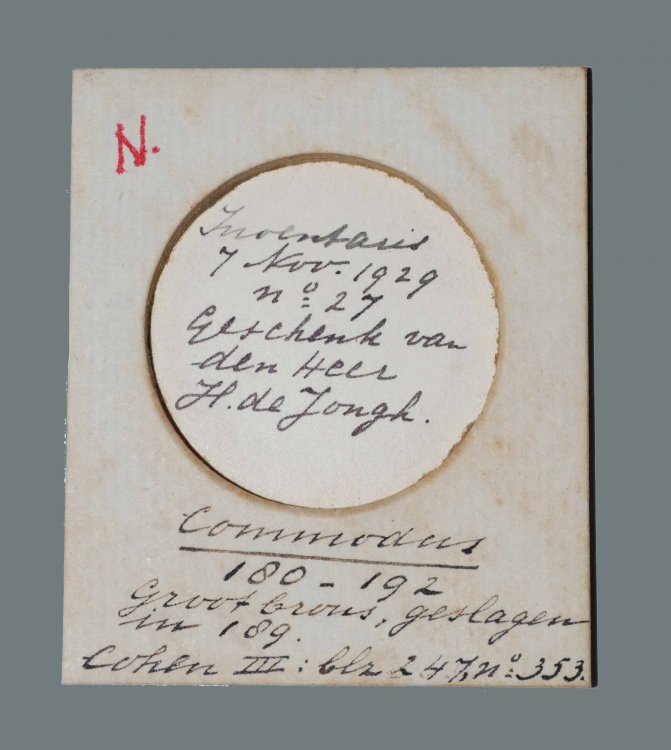 N.
Inventaris
7 Nov. 1929
nº 27
Geschenk van
den Heer
H. de Jongh.
Commodus
180 - 192
Groot brons, geslagen
in 189.
Cohen III: blz 247, nº 353.